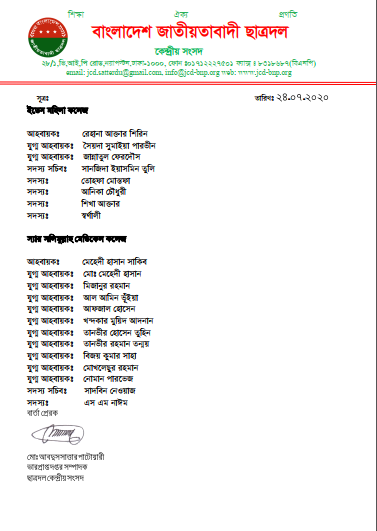 শিক্ষা ঐক্য প্রগতি
বাংলাদেশ জাতীয়তাবাদী ছাত্রদল
কেন্দ্রীয় সংসদ
২৮/১,ভি,আই,পি রোড,নয়াপল্টন,ঢাকা-1000, ফোন:
email: jcd.satterdu@gmail.com, info@jcd-bnp.org web: www.jcd-bnp.org
সূত্রঃ তারিখঃ ২৪.০৭.২০২০
ইডেন মহিলা কলেজ
আহবায়কঃ রেহানা আক্তার শিরিন
যুগ্ম আহবায়কঃ সৈয়দা সুমাইয়া পারভীন
যুগ্ম আহবায়কঃ জান্নাতুল ফেরদৌস
সদস্য সচিবঃ সানজিদা ইয়াসমিন তুলি
সদস্যঃ তোহফা মোস্তফা
সদস্যঃ আনিকা চৌধুরী
সদস্যঃ শিখা আক্তার
সদস্যঃ স্বর্ণালী
স্যার সলিমুল্লাহ মেডিকেল কলেজ
আহবায়কঃ মেহেদী হাসান সাকিব
যুগ্ম আহবায়কঃ মোঃ মেহেদী হাসান
যুগ্ম আহবায়কঃ মিজানুর রহমান
যুগ্ম আহবায়কঃ আল আমিন ভূঁইয়া
যুগ্ম আহবায়কঃ আফজাল হোসেন
যুগ্ম আহবায়কঃ খন্দকার মুয়িদ আদনান
যুগ্ম আহবায়কঃ তানভীর হোসেন তুহিন
যুগ্ম আহবায়কঃ তানভীর রহমান তন্ময়
যুগ্ম আহবায়কঃ বিজয় কুমার সাহা
যুগ্ম আহবায়কঃ মোখলেছুর রহমান
যুগ্ম আহবায়কঃ নোমান পারভেজ
সদস্য সচিবঃ সাদবিন নেওয়াজ
সদস্যঃ এস এম নাঈম
বার্তা প্রেরক
মোঃ আবদুস সাত্তার পাটোয়ারী
ভারপ্রাপ্ত দপ্তর সম্পাদক
ছাত্রদল কেন্দ্রীয় সংসদ